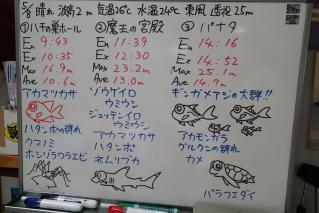 5/8 晴れ 波高2m 気温26℃ 水温24℃ 東風 透視25m
①ハチの巣ホール
En 9:43
Ex 10:36
Max 16.9m
Ave 10.6m
アカマツカサ
ハタンポの群れ
クマノミ
ホシゾラワラエビ
②魔王の宮殿
En 11:39
Ex 12:30
Max 23.2m
Ave 13.0m
ゾウゲイロ
ウミウシ
ジョッテンイロ
ウミウシ
アカマツカサ
ハタンポ
ネムリブカ
③パナタ
En 14:16
Ex 14:52
Max 25.1m
Ave 14.9m
ギンガメアジの大群!!
アカモンガラ
グルクンの群れ
カメ
バラフエダイ